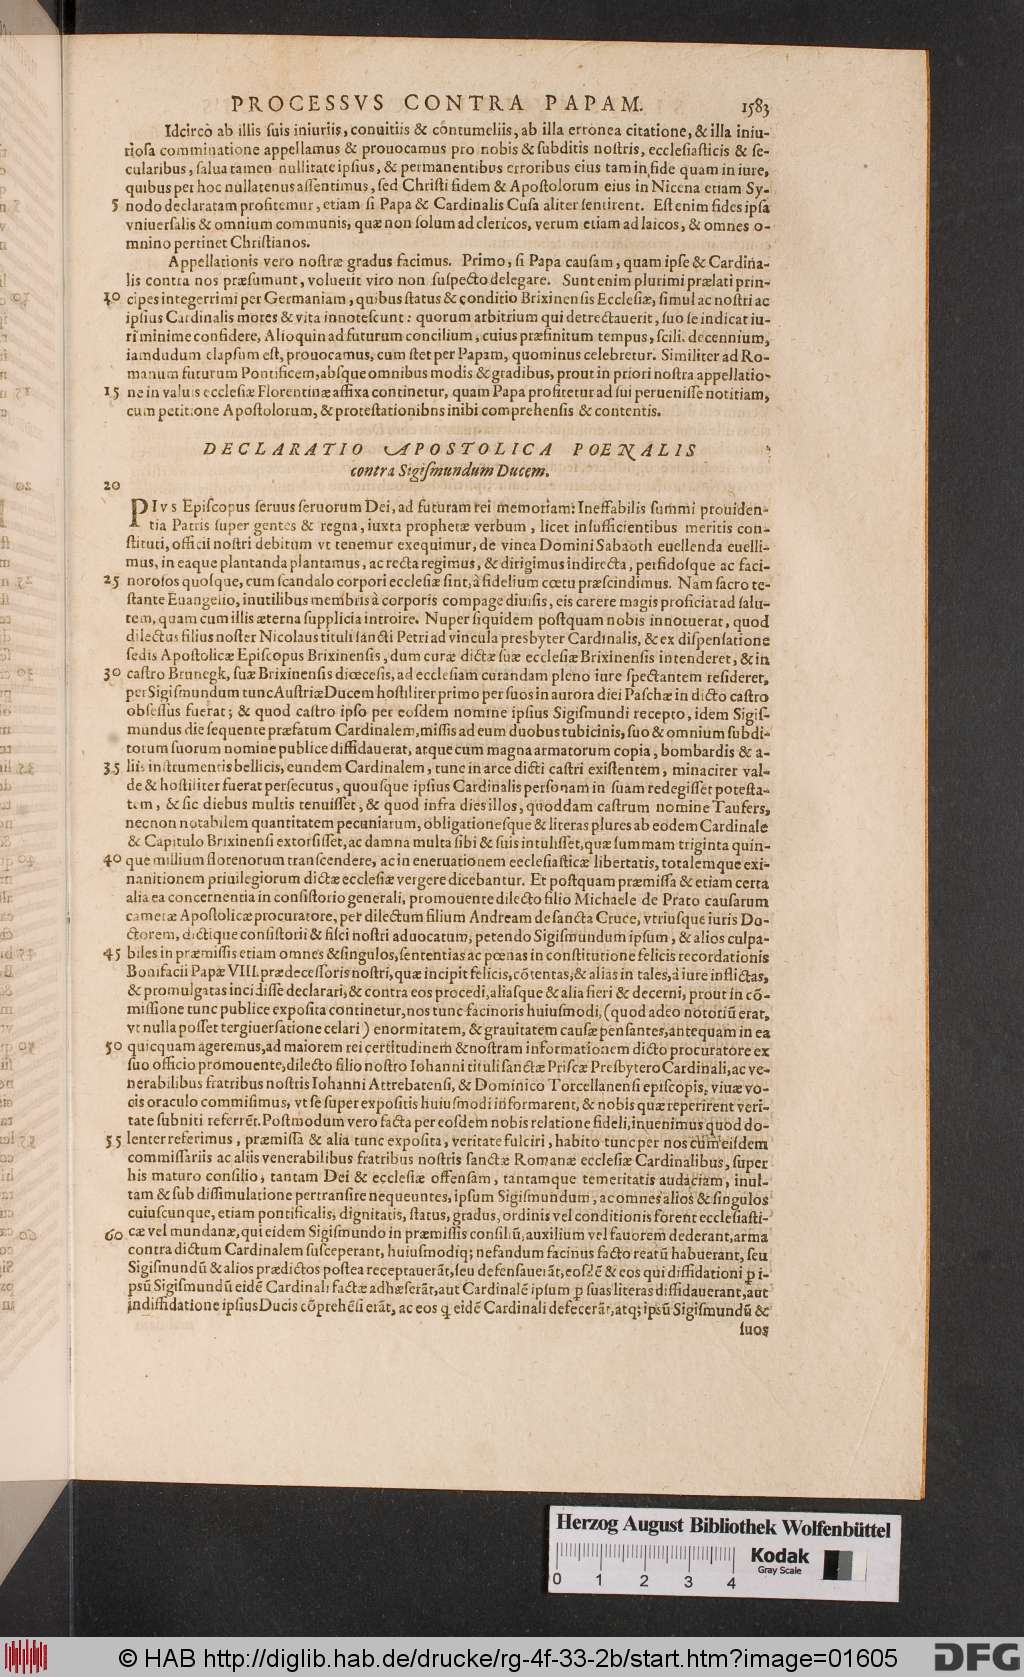 PROCESSVS CONTRA PAPAM. 1583
Idcirco ab illis suis iniuriis, conuitiis & contumeliis, ab illa erronea citatione, & illa iniu-
riosa comminatione appellamus & prouocamus pro nobis & subditis nostris, ecclesiasticis & se-
cularibus, salua tamen nullitate ipsius, & permanentibus erroribus eius tam in fide quam in iure,
quibus per hoc nullatenus assentimus, sed Christi fidem & Apostolorum eius in Nicena etiam Sy-
5 nodo declaratam profitemur, etiam si Papa & Cardinalis Cusa aliter sentirent. Est enim fides ipsa
vniuersalis & omnium communis, quæ non solum ad clericos, verum etiam ad laicos, & omnes o-
mnino pertinet Christianos.
Appellationis vero nostræ gradus facimus. Primo, si Papa causam, quam ipse & Cardina-
lis contra nos præsumunt, voluerit viro non suspecto delegare. Sunt enim plurimi prælati prin-
10 cipes integerrimi per Germaniam, quibus status & conditio Brixinensis Ecclesiæ, simul ac nostri ac
ipsius Cardinalis mores & vita innotescunt: quorum arbitrium qui detrectauerit, suo se indicat iu-
ri minime confidere, Alioquin ad futurum concilium, cuius præfinitum tempus, scili. decennium,
iamdudum elapsum est, prouocamus, cum stet per Papam, quominus celebretur. Similiter ad Ro-
manum futurum Pontificem, absque omnibus modis & gradibus, prout in priori nostra appellatio-
15 ne in valuis ecclesiæ Florentinæ affixa continetur, quam Papa profitetur ad sui peruenisse notitiam,
cum petitione Apostolorum, & protestationibns inibi comprehensis & contentis.
DECLARATIO APOSTOLICA POENALIS
contra Sigismundum Ducem.
20
PIVS Episcopus seruus seruorum Dei, ad futuram rei memoriam: Ineffabilis summi prouiden-
tia Patris super gentes & regna, iuxta prophetæ verbum, licet insufficientibus meritis con-
stituti, officii nostri debitum vt tenemur exequimur, de vinea Domini Sabaoth euellenda euelli-
mus, in eaque plantanda plantamus, ac recta regimus, & dirigimus indirecta, perfidosque ac faci-
25 norosos quosque, cum scandalo corpori ecclesiæ sint, à fidelium cœtu præscindimus. Nam sacro te-
stante Euangelio, inutilibus membris à corporis compage diuisis, eis carere magis proficiat ad salu-
tem, quam cum illis æterna supplicia introire. Nuper siquidem postquam nobis innotuerat, quod
dilectus filius noster Nicolaus tituli sancti Petri ad vincula presbyter Cardinalis, & ex dispensatione
sedis Apostolicæ Episcopus Brixinensis, dum curæ dictæ suæ ecclesiæ Brixinensis intenderet, & in
30 castro Brunegk, suæ Brixinensis diœcesis, ad ecclesiam curandam pleno iure spectantem resideret,
per Sigismundum tunc Austriæ Ducem hostiliter primo per suos in aurora diei Paschæ in dicto castro
obsessus fuerat; & quod castro ipso per eosdem nomine ipsius Sigismundi recepto, idem Sigis-
mundus die sequente præfatum Cardinalem, missis ad eum duobus tubicinis, suo & omnium subdi-
torum suorum nomine publice diffidauerat, atque cum magna armatorum copia, bombardis & a-
35 liis instrumentis bellicis, eundem Cardinalem, tunc in arce dicti castri existentem, minaciter val-
de & hostiliter fuerat persecutus, quousque ipsius Cardinalis personam in suam redegisset potesta-
tem, & sic diebus multis tenuisset, & quod infra dies illos, quoddam castrum nomine Taufers,
necnon notabilem quantitatem pecuniarum, obligationesque & literas plures ab eodem Cardinale
& Capitulo Brixinensi extorsisset, ac damna multa sibi & suis intulisset, quæ summam triginta quin-
40 que millium florenorum transcendere, ac in eneruationem ecclesiasticæ libertatis, totalemque exi-
nanitionem priuilegiorum dictæ ecclesiæ vergere dicebantur. Et postquam præmissa & etiam certa
alia ea concernentia in consistorio generali, promouente dilecto filio Michaele de Prato causarum
cameræ Apostolicæ procuratore, per dilectum filium Andream de sancta Cruce, vtriusque iuris Do-
ctorem, dictique consistorii & fisci nostri aduocatum, petendo Sigismundum ipsum, & alios culpa-
45 biles in præmissis etiam omnes & singulos, sententias ac pœnas in constitutione felicis recordationis
Bonifacii Papæ VIII. prædecessoris nostri, quæ incipit felicis, cōtentas, & alias in tales, à iure inflictas,
& promulgatas incidisse declarari, & contra eos procedi, aliasque & alia fieri & decerni, prout in cō-
missione tunc publice exposita continetur, nos tunc facinoris huiusmodi, (quod adeo notoriū erat,
vt nulla posset tergiuersatione celari) enormitatem, & grauitatem causæ pensantes, antequam in ea
50 quicquam ageremus, ad maiorem rei certitudinem & nostram informationem dicto procuratore ex
suo officio promouente, dilecto filio nostro Iohanni tituli sanctæ Priscæ Presbytero Cardinali, ac ve-
nerabilibus fratribus nostris Iohanni Attrebatensi, & Dominico Torcellanensi episcopis, viuæ vo-
cis oraculo commisimus, vt se super expositis huiusmodi informarent, & nobis quæ reperirent veri-
tate subniti referrēt. Postmodum vero facta per eosdem nobis relatione fideli, inuenimus quod do-
55 lenter referimus, præmissa & alia tunc exposita, veritate fulciri, habito tunc per nos cum eisdem
commissariis ac aliis venerabilibus fratribus nostris sanctæ Romanæ ecclesiæ Cardinalibus, super
his maturo consilio, tantam Dei & ecclesiæ offensam, tantamque temeritatis audaciam, inul-
tam & sub dissimulatione pertransire nequeuntes, ipsum Sigismundum, ac omnes alios & singulos
cuiuscunque, etiam pontificalis, dignitatis, status, gradus, ordinis vel conditionis forent ecclesiasti-
60 cæ vel mundanæ, qui eidem Sigismundo in præmissis consiliū, auxilium vel fauorem dederant, arma
contra dictum Cardinalem susceperant, huiusmodiq; nefandum facinus facto reatū habuerant, seu
Sigismundū & alios prædictos postea receptauerāt, seu defensauerāt, eosdē & eos qui diffidationi ꝑ i-
psū Sigismundū eidē Cardinali factæ adhæserāt, aut Cardinalē ipsum ꝑ suas literas diffidauerant, aut
in diffidatione ipsius Ducis cōprehēsi erāt, ac eos q̨ eidē Cardinali defecerāt, atq; ipsū Sigismundū &
suos
Herzog August Bibliothek Wolfenbüttel
Kodak
Gray Scale
0 1 2 3 4
© HAB http://diglib.hab.de/drucke/rg-4f-33-2b/start.htm?image=01605
DFG